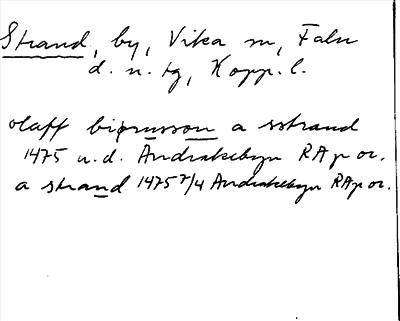 Strand, by, Vika sn, Falu
d. n. tg, Kopp. l.
olaff biørnsson a sstrand
1475 u.d. Andrakebyn RAp or.
a strand 1475 7/4 Andrakebyn RAp or.